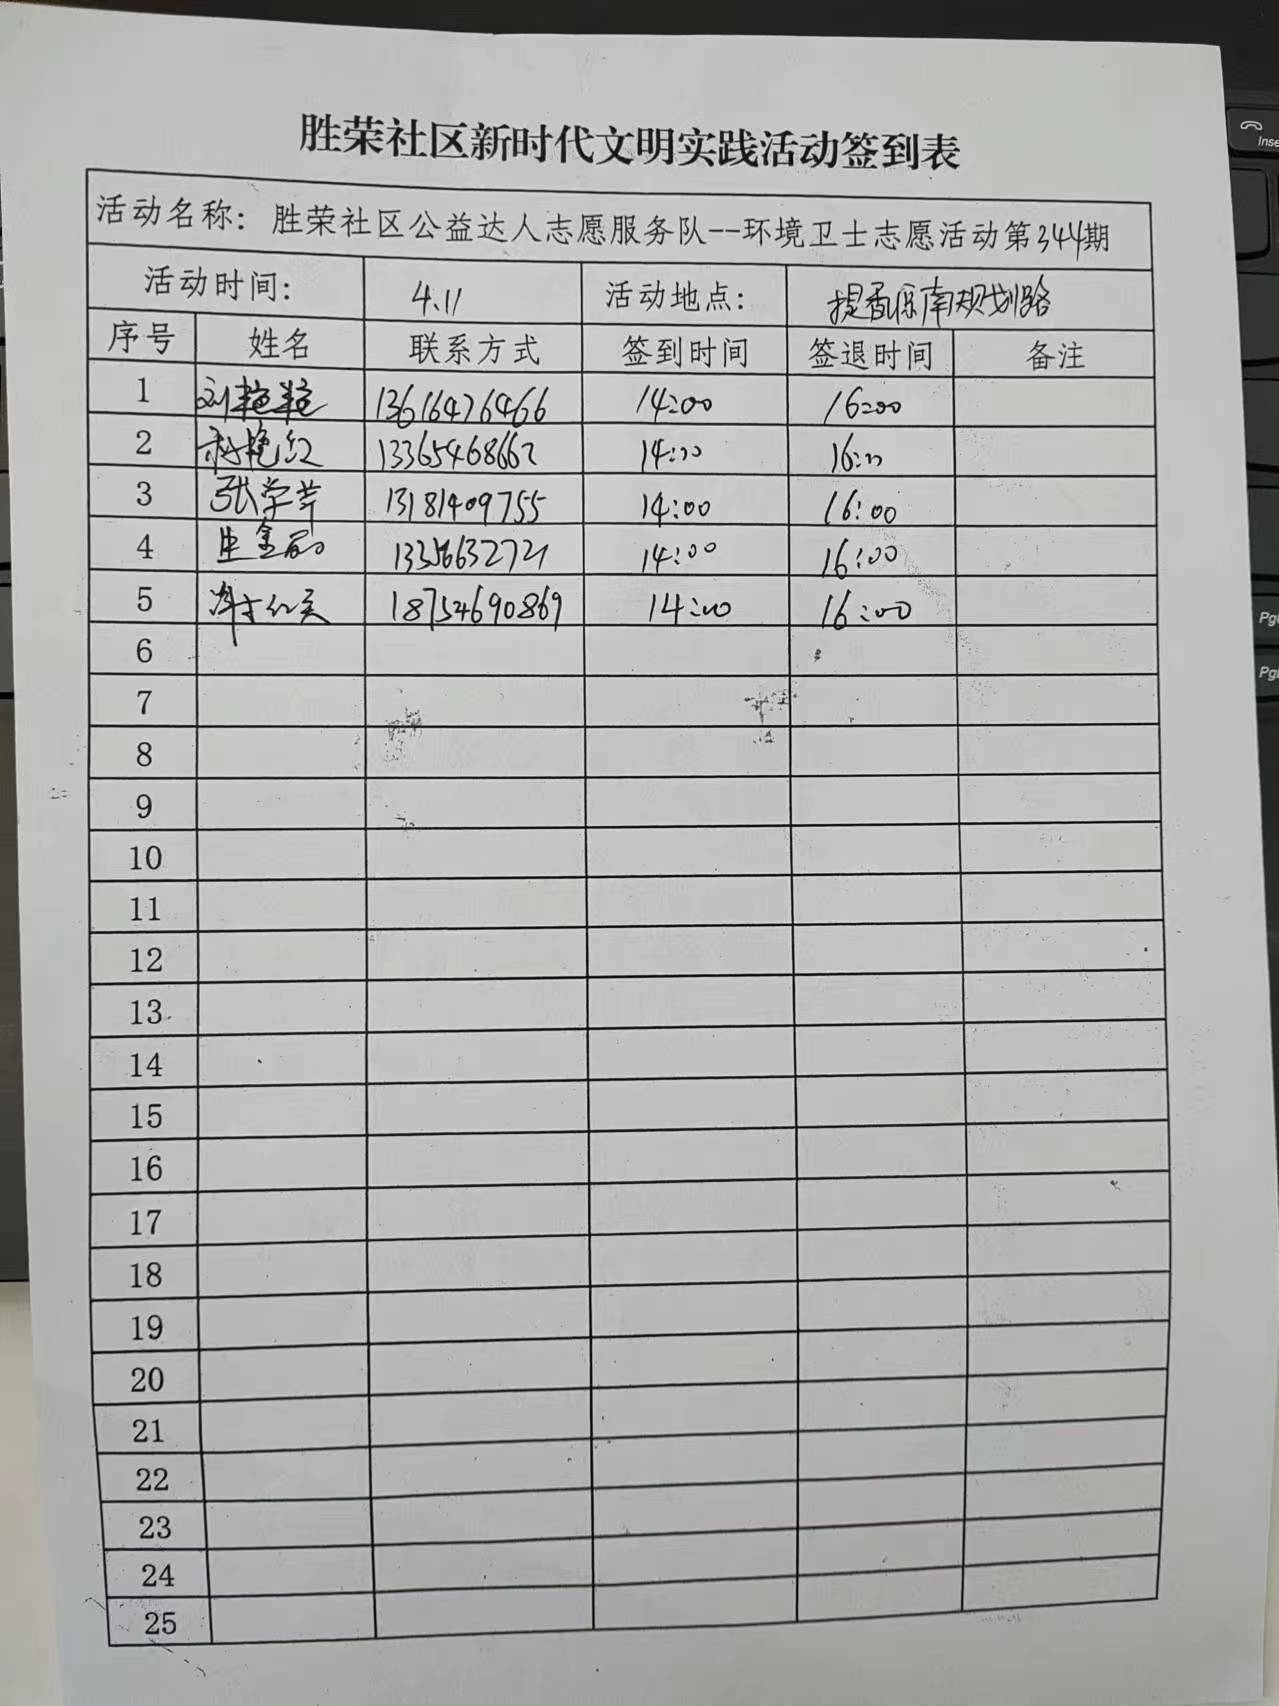 胜荣社区新时代文明实践活动签到表
活动名称：胜荣社区公益达人志愿服务队--环境卫士志愿活动第344期
活动时间： 4.11 活动地点： 提香郡南规划路
序号 姓名 联系方式 签到时间 签退时间 备注
1 刘艳艳 13616476466 14:00 16:00
2 艳红 13365468662 14:00 16:00
3 张学芹 13181409755 14:00 16:00
4 13356632721 14:00 16:00
5 18754690869 14:00 16:00
6
7
8
9
10
11
12
13
14
15
16
17
18
19
20
21
22
23
24
25
Inse
PgU
PgD